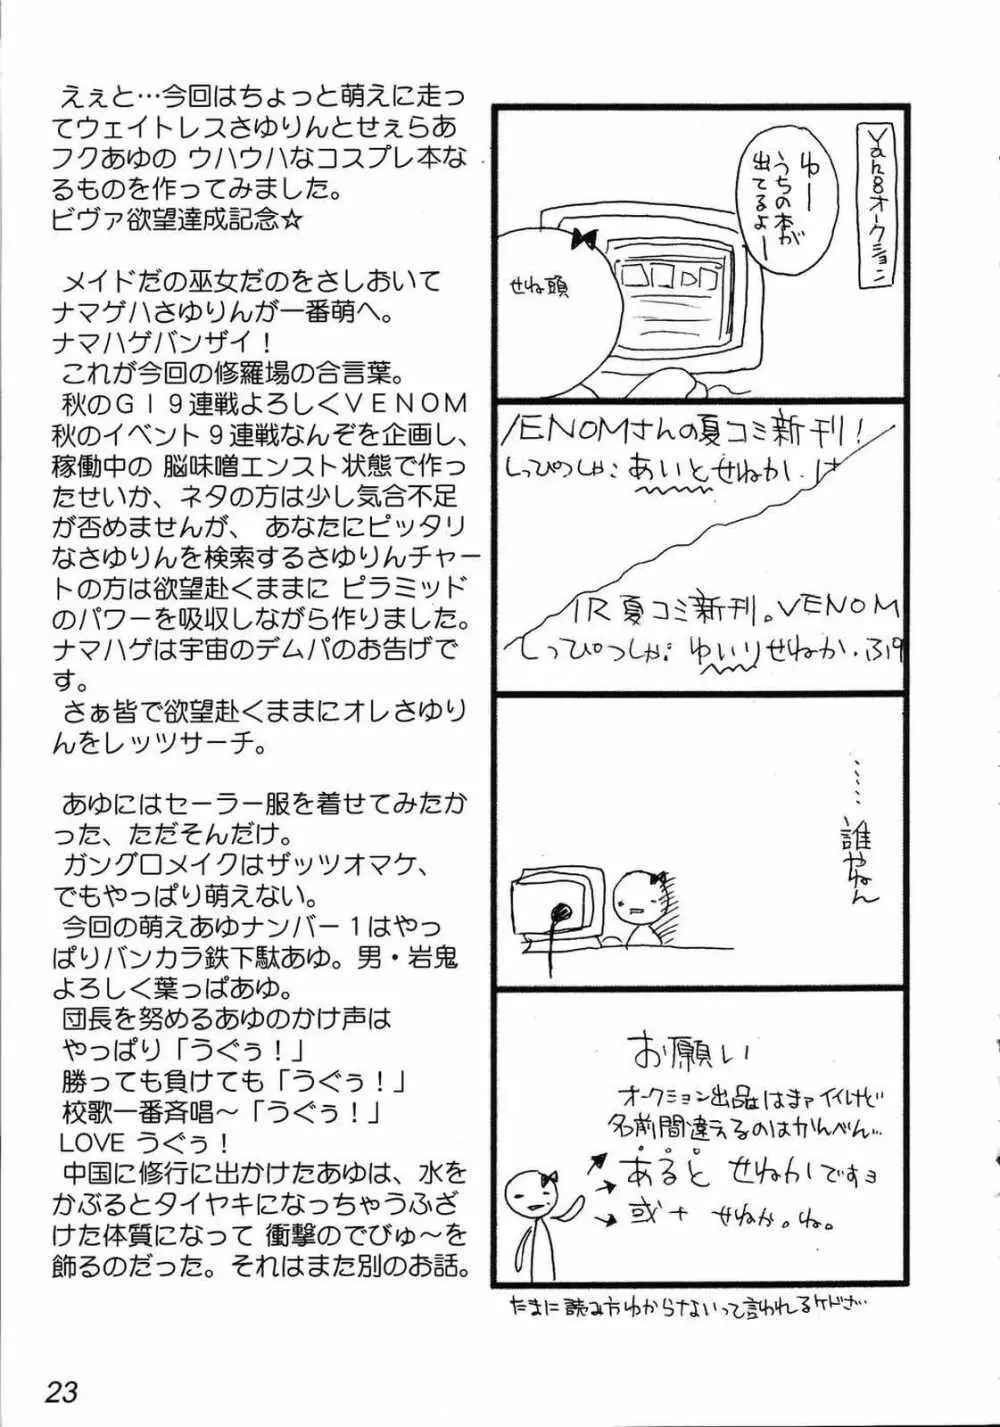 えぇと…今回はちょっと萌えに走っ
てウェイトレスさゆりんとせぇらあ
フクあゆの ウハウハなコスプレ本な
るものを作ってみました。
ビヴァ欲望達成記念☆
メイドだの巫女だのをさしおいて
ナマゲハさゆりんが一番萌へ。
ナマハゲバンザイ！
これが今回の修羅場の合言葉。
秋のＧＩ９連戦よろしくＶＥＮＯＭ
秋のイベント９連戦なんぞを企画し、
稼働中の 脳味噌エンスト状態で作っ
たせいか、ネタの方は少し気合不足
が否めませんが、 あなたにピッタリ
なさゆりんを検索するさゆりんチャー
トの方は欲望赴くままに ピラミッド
のパワーを吸収しながら作りました。
ナマハゲは宇宙のデムパのお告げで
す。
さぁ皆で欲望赴くままにオレさゆり
んをレッツサーチ。
あゆにはセーラー服を着せてみたか
った、ただそんだけ。
ガングロメイクはザッツオマケ、
でもやっぱり萌えない。
今回の萌えあゆナンバー１はやっ
ぱりバンカラ鉄下駄あゆ。男・岩鬼
よろしく葉っぱあゆ。
団長を努めるあゆのかけ声は
やっぱり「うぐぅ！」
勝っても負けても「うぐぅ！」
校歌一番斉唱～「うぐぅ！」
LOVE うぐぅ！
中国に修行に出かけたあゆは、水を
かぶるとタイヤキになっちゃうふざ
けた体質になって 衝撃のでびゅ～を
飾るのだった。それはまた別のお話。
Yah8オークション
ゆー
うちの本が
出てるよー
せね頭
VENOMさんの夏コミ新刊！
しっぴつしゃ:あいとせねか.は
IR夏コミ新刊。VENOM
しっぴつしゃ:ゆいりせねか.ふゆ
……誰やねん
お願い
オークション出品はまァイイけど
名前間違えるのはかんべん…
あると せねかですョ
或十 せねか。ね。
たまに読み方ゆからないって言われるケドさ…
23